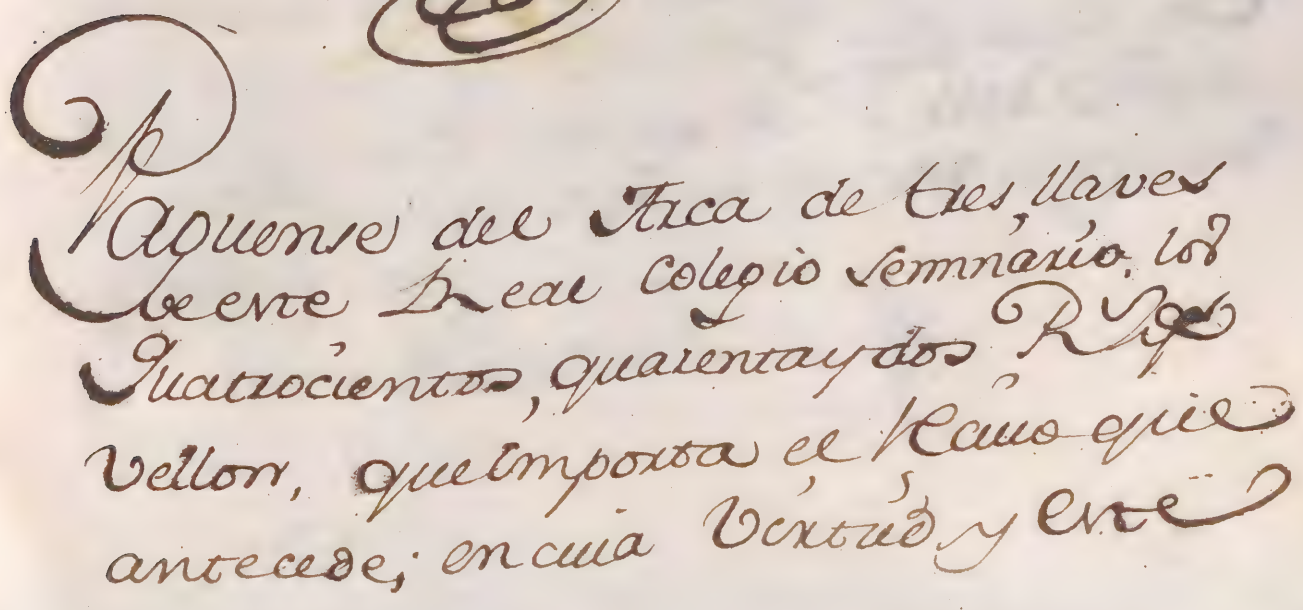 Paguense del Arca de tres, llaves
de este Real Colegio Seminário, los
Quatrocientos, quarenta y dos R.ˢ de
Vellon, que importa el Recivo que
antecede; en cuia Virtud y este